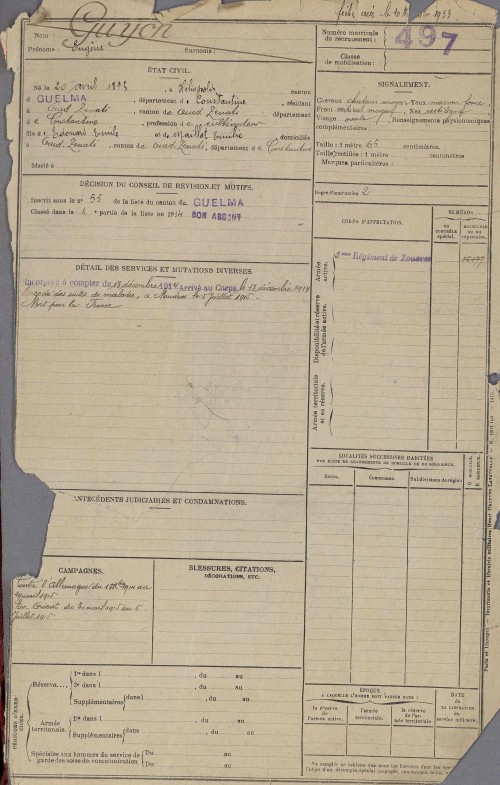 fiche créée le 10
1933
Nom : Guyon
Prénoms : Eugène
Surnoms :
Numéro matricule
du recrutement :
497
Classe
de mobilisation :
ÉTAT CIVIL.
Né le 20 avril 1893, à Héliopolis canton
d GUELMA, département d e Constantine, résidant
à Oued Zenati, canton de Oued Zenati, département
d e Constantine, profession d e cultivateur
fils d'Edouard Emile et de Maillot Emilie domiciliés
à Oued Zenati, canton de Oued Zenati, département d e Constantine
Marié à
SIGNALEMENT.
Cheveux châtain moyen Yeux marron foncé
Front vertical moyen Nez rectiligne
Visage ovale Renseignements physionomiques
complémentaires :
Taille : 1 mètre 65 centimètres.
Taille rectifiée : 1 mètre centimètres
Marques particulières :
DÉCISION DU CONSEIL DE REVISION ET MOTIFS.
Inscrit sous le n° 55 de la liste du canton de GUELMA
Classé dans la 1 e partie de la liste en 1914 BON ABSENT
Degré d'instruction 2
CORPS D'AFFECTATION.
NUMÉROS
AU CONTRÔLE SPÉCIAL.
MATRICULE OU AU RÉPERTOIRE.
Armée active.
3ème Régiment de Zouaves
Disponibilité et réserve de l'armée active.
Armée territoriale et sa réserve.
DÉTAIL DES SERVICES ET MUTATIONS DIVERSES
Incorporé à compter du 13 décembre 1914 Arrivé au Corps le 13 décembre 1914
Décédé des suites de maladies, à Moudros le 5 Juillet 1915
Mort pour la France
LOCALITÉS SUCCESSIVES HABITÉES
PAR SUITE DE CHANGEMENTS DE DOMICILE OU DE RÉSIDENCE.
Dates.
Communes.
Subdivisions de région
D domicile.
R résidence.
ANTÉCÉDENTS JUDICIAIRES ET CONDAMNATIONS.
CAMPAGNES.
Contre l'Allemagne du 13 Xbre 1914 au
avril 1915
En Orient du 30 avril 1915 au 5
Juillet 1915
BLESSURES, CITATIONS,
DÉCORATIONS, ETC.
PÉRIODES D'EXERCICES.
Réserve....
1re dans l , du au
2e dans l , du au
Supplémentaires dans l , du au
, du au
Armée
territoriale.
1re dans l , du au
Supplémentaires dans l , du au
, du au
Spéciale aux hommes du service de
garde des voies de communication
Du au
Du au
ÉPOQUE
A LAQUELLE L'HOMME DOIT PASSER DANS :
la réserve de l'armée active.
l'armée territoriale.
la réserve de l'armée territoriale
DATE
DE LA LIBÉRATION DU
service militaire.